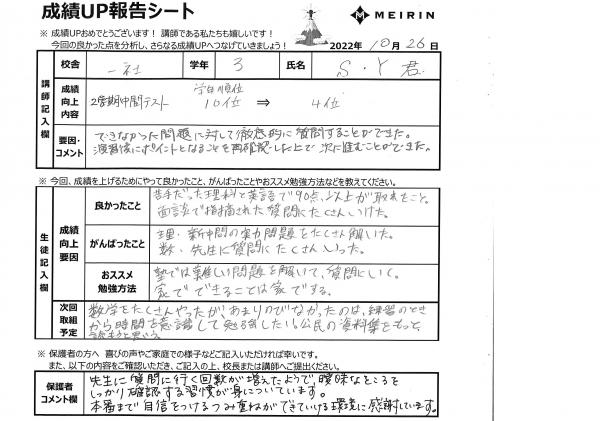 成績UP報告シート
MEIRIN
※ 成績UPおめでとうございます! 講師である私たちも嬉しいです!
今回の良かった点を分析し、さらなる成績UPへつなげていきましょう!
2022年 10月 26日
校舎 一社 学年 3 氏名 S.Y 君
講師記入欄
成績向上内容
学年順位
2学期中間テスト 10位 ⇒ 4位
要因・コメント
できなかった問題に対して徹底的に質問することができた。
演習後にポイントとなることを再確認した上で次に進むことができた。
※ 今回、成績を上げるためにやって良かったこと、がんばったことやおススメ勉強方法などを教えてください。
生徒記入欄
成績向上要因
良かったこと
苦手だった理科と英語で90点以上が取れたこと。
面談で指摘された質問にたくさんいけた。
がんばったこと
理・新中問の実力問題をたくさん解いた。
数・先生に質問にたくさんいった。
おススメ勉強方法
塾では難しい問題を解いて、質問にいく。
家でできることは家でする。
次回取組予定
数学をたくさんやったがあまりのびなかったのは、練習のとき
から時間を意識して勉強したい。公民の資料集をもっと
読もうと思う。
※ 保護者の方へ 喜びの声やご家庭での様子などご記入いただければ幸いです。
また、以下の内容をご確認いただき、ご記入の上、校長または講師へご提出ください。
保護者コメント欄
先生に質問に行く回数が増えたようで曖昧なところを
しっかり確認する習慣が身についています。
本番まで自信をつけるつみ重ねができていける環境に感謝しています。